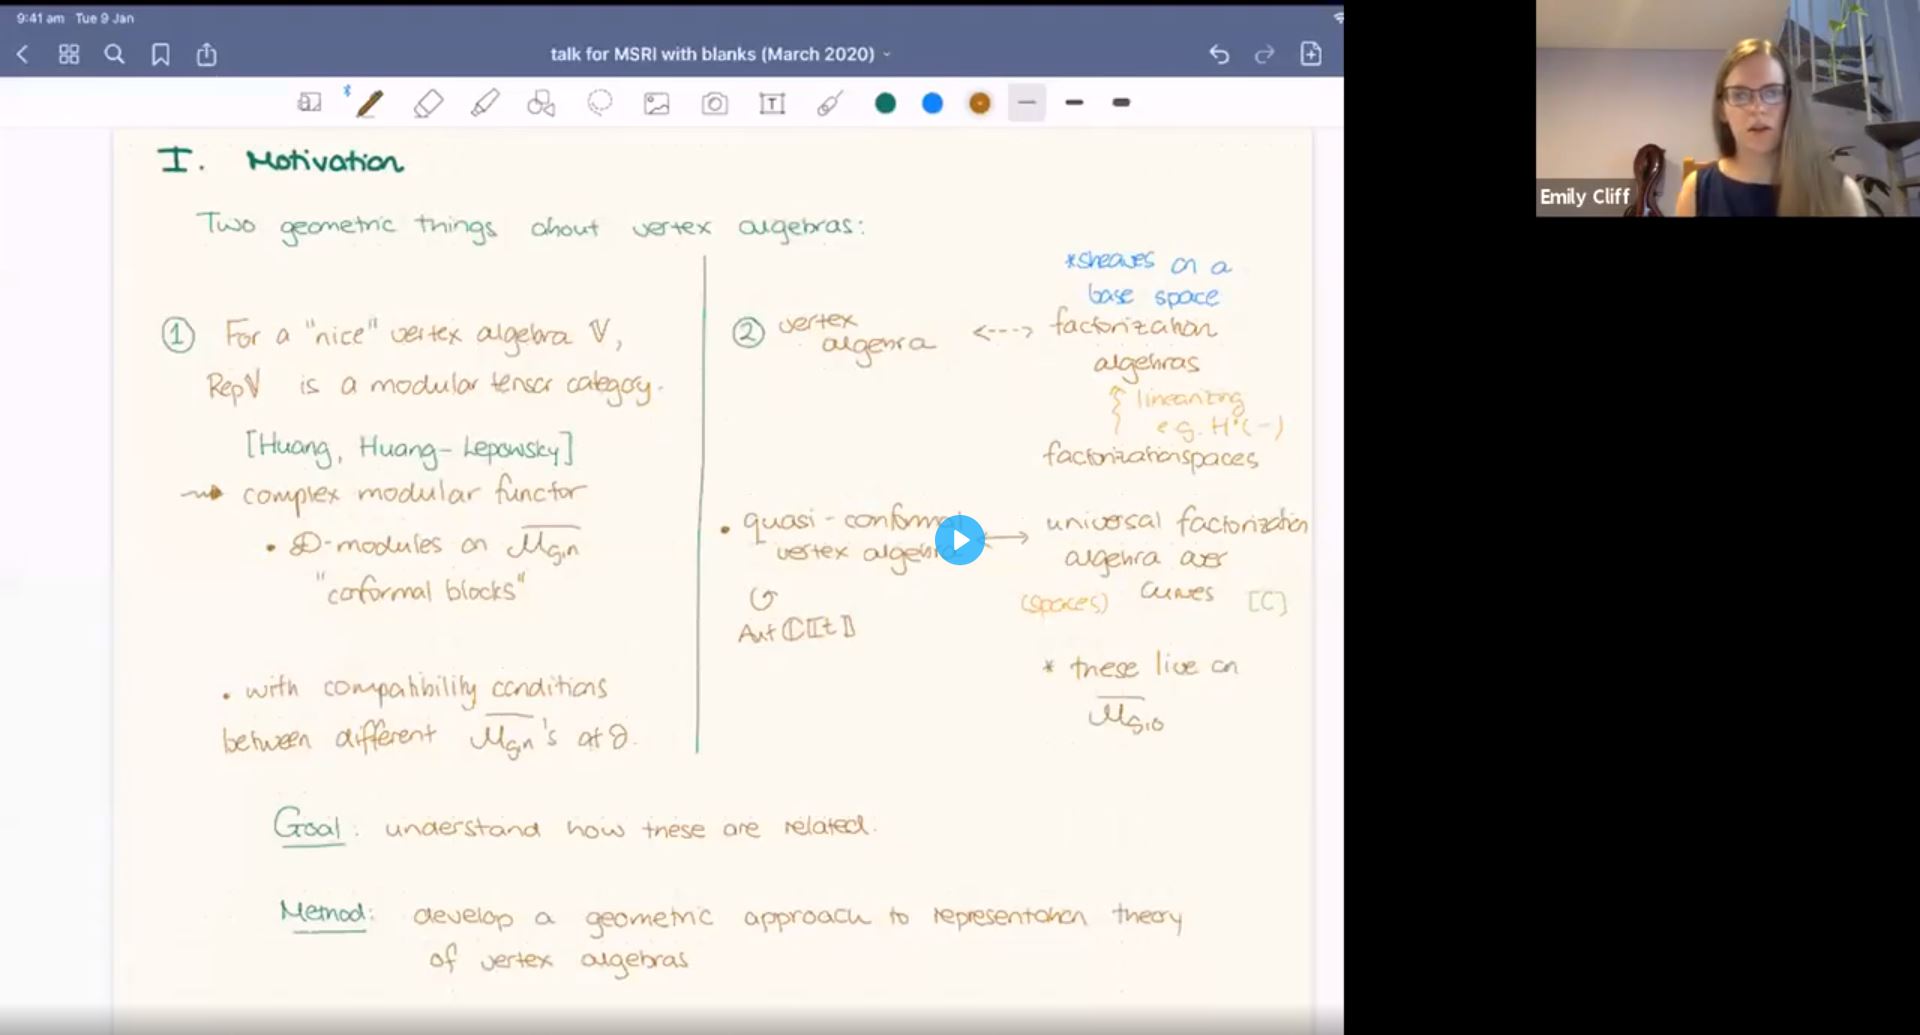 9:41 am Tue 9 Jan
talk for MSRI with blanks (March 2020)
I. Motivation
Two geometric things about vertex algebras:
① For a "nice" vertex algebra V,
Rep V is a modular tensor category.
[Huang, Huang-Lepowsky]
⇝ complex modular functor
• D-modules on \overline{M}_{g,n}
"conformal blocks"
• with compatibility conditions
between different \overline{M}_{g,n}'s at ∂.
*sheaves on a
base space
② vertex algebra <---> factorization
algebras
linearizing
e.g. H•(-)
factorization spaces
• quasi-conformal vertex algebra <—> universal factorization
algebra over
(spaces) curves [C]
↺
Aut ℂ[[t]]
* these live on
\overline{M}_{g,0}
Goal: understand how these are related.
Method: develop a geometric approach to representation theory
of vertex algebras
Emily Cliff